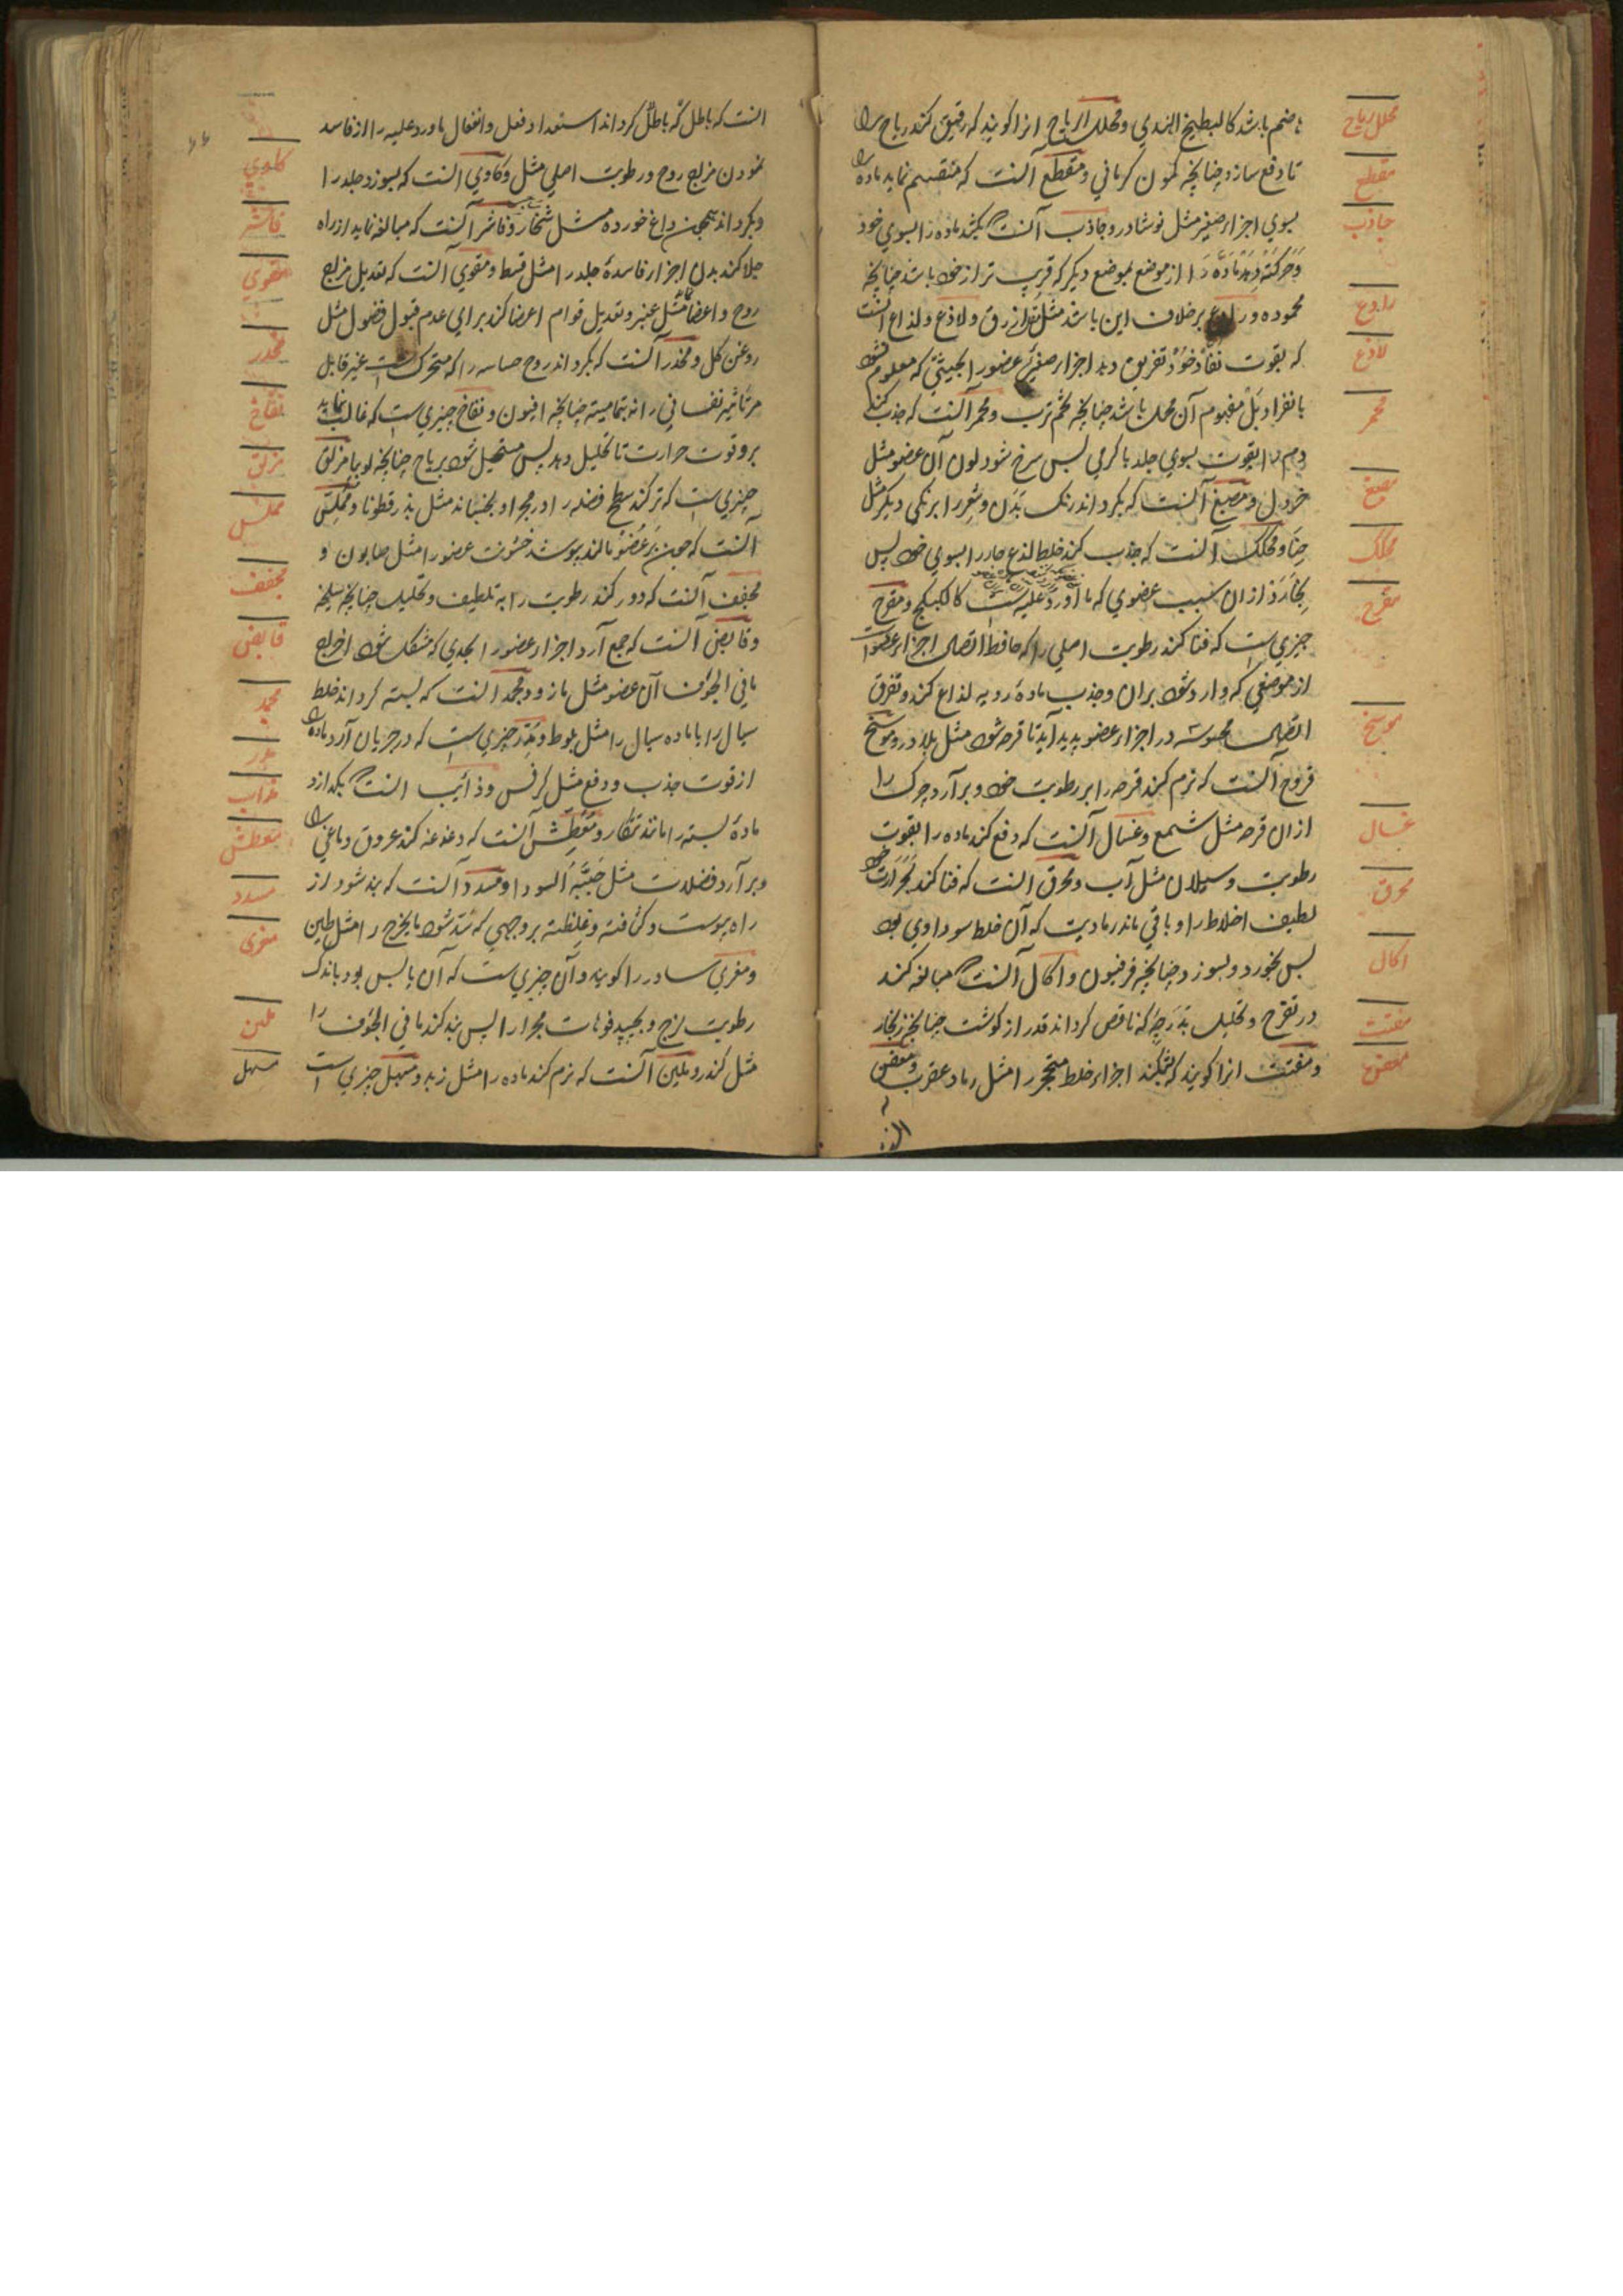 هاضم باشد کالبطیخ الهندی و محلل الریاح انرا کویند که رقیق کند ریاح را
تا دفع سازد چنانچه کمون کرمانی و مقطع آنست که منقسم نماید ماده را
بسوی اجزاء صغیر مثل نوشادر و جاذب آنست که بکشد ماده را بسوی خود
و حرکت دهد ماده را از موضع بموضع دیکر که قریب تر از خود باشد چنانچه
محموده و رادع بر خلاف این باشد مثل ازرق و لاذع و لذاع آنست
که بقوت نفاذ خود تفریق دهد اجزاء صغیره عضو را بحیثیتی که معلوم نشود
بانفراد بل مفهوم آن محل باشد چنانچه تخم ترب و محمر آنست که جذب کند
دم را بقوت بسوی جلد با کرمی پس سرخ شود لون آن عضو مثل
خردل و مصبغ آنست که بکرداند رنک بدن و شعر را برنکی دیکر مثل
حنا و محکک آنست که جذب کند خلط لذع حار را بسوی خود پس
بخارد ازان سبب عضوی که ماورد علیه است کالکبیکج و مقرح
چیزی است که فنا کند رطوبت اصلی را که حافظ اتصال اجزاء عضو است
از موضعی که وارد شود بران و جذب ماده رویه لذاع کند و تفرق
اتصال محسوسه در اجزاء عضو پدید آید تا قرحه شود مثل بلادر و موسخ
قروح آنست که نرم کند قرحه را بر رطوبت خود و بر آرد چرک را
ازان قرحه مثل شمع و غسال آنست که دفع کند ماده را بقوت
رطوبت و سیلان مثل آب و محرق آنست که فنا کند بحرارت خود
لطیف اخلاط را و باقی ماند رمادیت که آن خلط سوداوی بود
پس بخورد و بسوزد چنانچه فرفیون و اکال آنست که مبالغه کند
در تقرح و تحلیل بدرجه که ناقص کرداند قدر از کوشت چنانچه زنجار
و مفتت انرا کویند که بشکند اجزاء خلط متحجر را مثل رماد عقرب و معفن
محلل ریاح
مقطع
جاذب
رادع
لاذع
محمر
مصبغ
محکک
مقرح
موسخ
غسال
محرق
اکال
مفتت
معفن
آنست که باطل کرداند استعداد فعل و انفعال ماورد علیه را از فاسد
نمودن مزاج روح و رطوبت اصلی مثل و کاوی آنست که بسوزد جلد را
و بکرداند همچون داغ خورده مثل شخار و قاشر آنست که مبالغه نماید از راه
جلا کند بدن اجزاء فاسده جلد را مثل قسط و مقوی آنست که تعدیل مزاج
روح و اعضا مثل عنبر و تعدیل قوام اعضا کند برای عدم قبول فضول مثل
روغن کل و مخدر آنست که بکرداند روح حساسه را که متحرک است غیر قابل
مر تاثیر نفسانی را نه بتمامیته چنانچه افیون و نفاخ چیزی است که غالب نماید
برو قوت حرارت تا تحلیل دهد پس مستحیل شود بریاح چنانچه لوبیا مزلق
چیزی است که تر کند سطح فضله را و مجرا و بجنباند مثل بذر قطونا و مملس
آنست که چون بر عضو مالند بپوشد خشونت عضو را مثل صابون و
مجفف آنست که دور کند رطوبت را به تلطیف و تحلیل چنانچه سلیخه
و قابض آنست که جمع آرد اجزاء عضو را بحدی که مشکل شود اخراج
مافی الجوف آن عضو مثل مازو و مجمد آنست که بسته کرداند خلط
سیال را یا ماده سیال را مثل بلوط و مدر چیزی است که در جریان آرد ماده را
از قوت جذب و دفع مثل کرفس و ذائب آنست که بکدازد
ماده بسته را مانند تنکار و معطش آنست که دغدغه کند عروق دماغی را
و بر آرد فضلات مثل حبة السودا و مسدد آنست که بند شود از
راه یبوست و کثافته و غلظته بروجهی که سد شود مایخرج را مثل طین
و مغری سادر را کویند و آن چیزی ست که آن یابس بود باندک
رطوبت لزج و بچسپد فوهات مجرا را پس بند کند مافی الجوف را
مثل کندر و ملین آنست که نرم کند ماده را مثل زبد و مسهل چیزی است
کاوی
قاشر
مقوی
مخدر
نفاخ
مزلق
مملس
مجفف
قابض
مجمد
مدر
ذائب
معطش
مسدد
مغری
ملین
مسهل